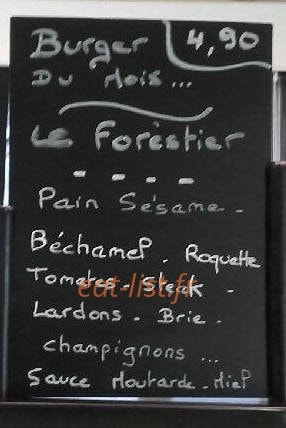 Burger 4,90
Du Mois ...
Le Forestier
Pain Sésame -
Béchamel - Roquette
Tomates - Steak -
eat-list.fr
Lardons - Brie -
champignons ...
Sauce Moutarde - Miel